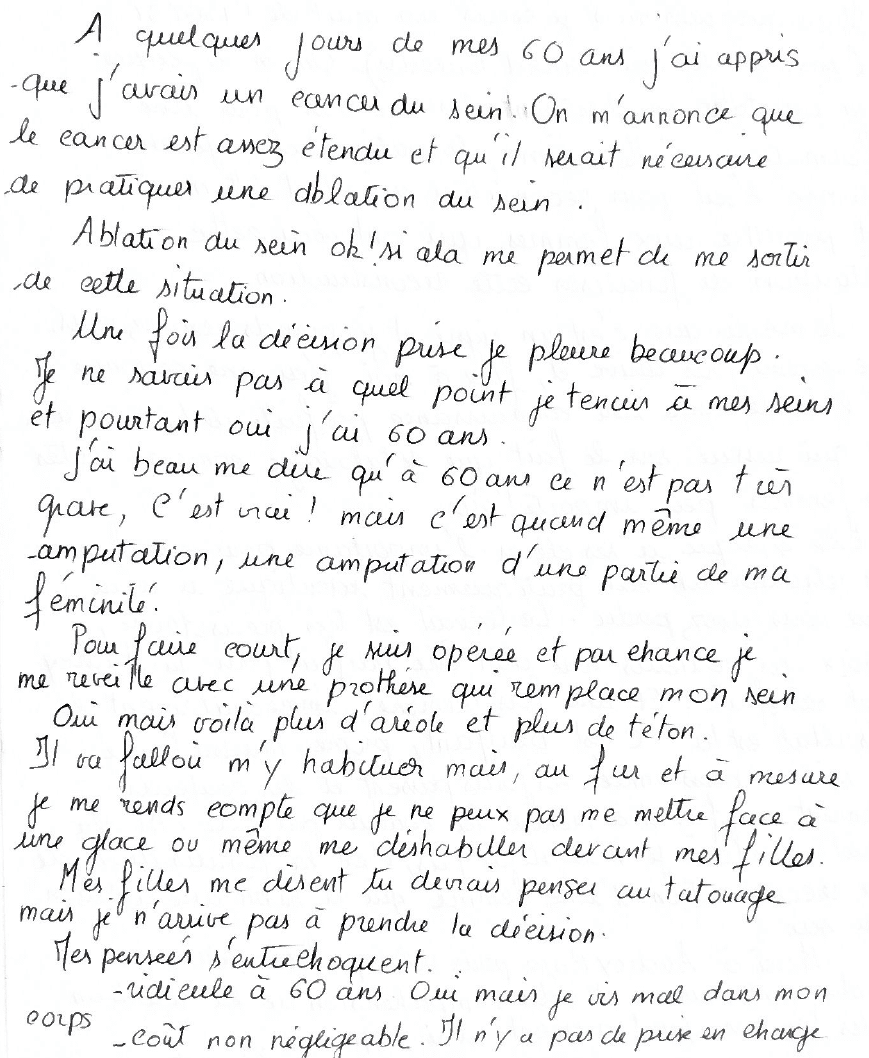 A quelques jours de mes 60 ans j'ai appris
que j'avais un cancer du sein. On m'annonce que
le cancer est assez étendu et qu'il serait nécessaire
de pratiquer une ablation du sein.
Ablation du sein ok! si cela me permet de me sortir
de cette situation.
Une fois la décision prise je pleure beaucoup.
Je ne savais pas à quel point je tenais à mes seins
et pourtant oui j'ai 60 ans.
J'ai beau me dire qu'à 60 ans ce n'est pas très
grave, C'est vrai! mais c'est quand même une
amputation, une amputation d'une partie de ma
féminité.
Pour faire court, je suis opérée et par chance je
me réveille avec une prothèse qui remplace mon sein
Oui mais voilà plus d'aréole et plus de téton.
Il va falloir m'y habituer mais, au fur et à mesure
je me rends compte que je ne peux pas me mettre face à
une glace ou même me déshabiller devant mes filles.
Mes filles me disent tu devrais penser au tatouage
mais je n'arrive pas à prendre la décision.
Mes pensées s'entrechoquent.
-ridicule à 60 ans. Oui mais je vis mal dans mon
corps
-coût non négligeable. Il n'y a pas de prise en charge